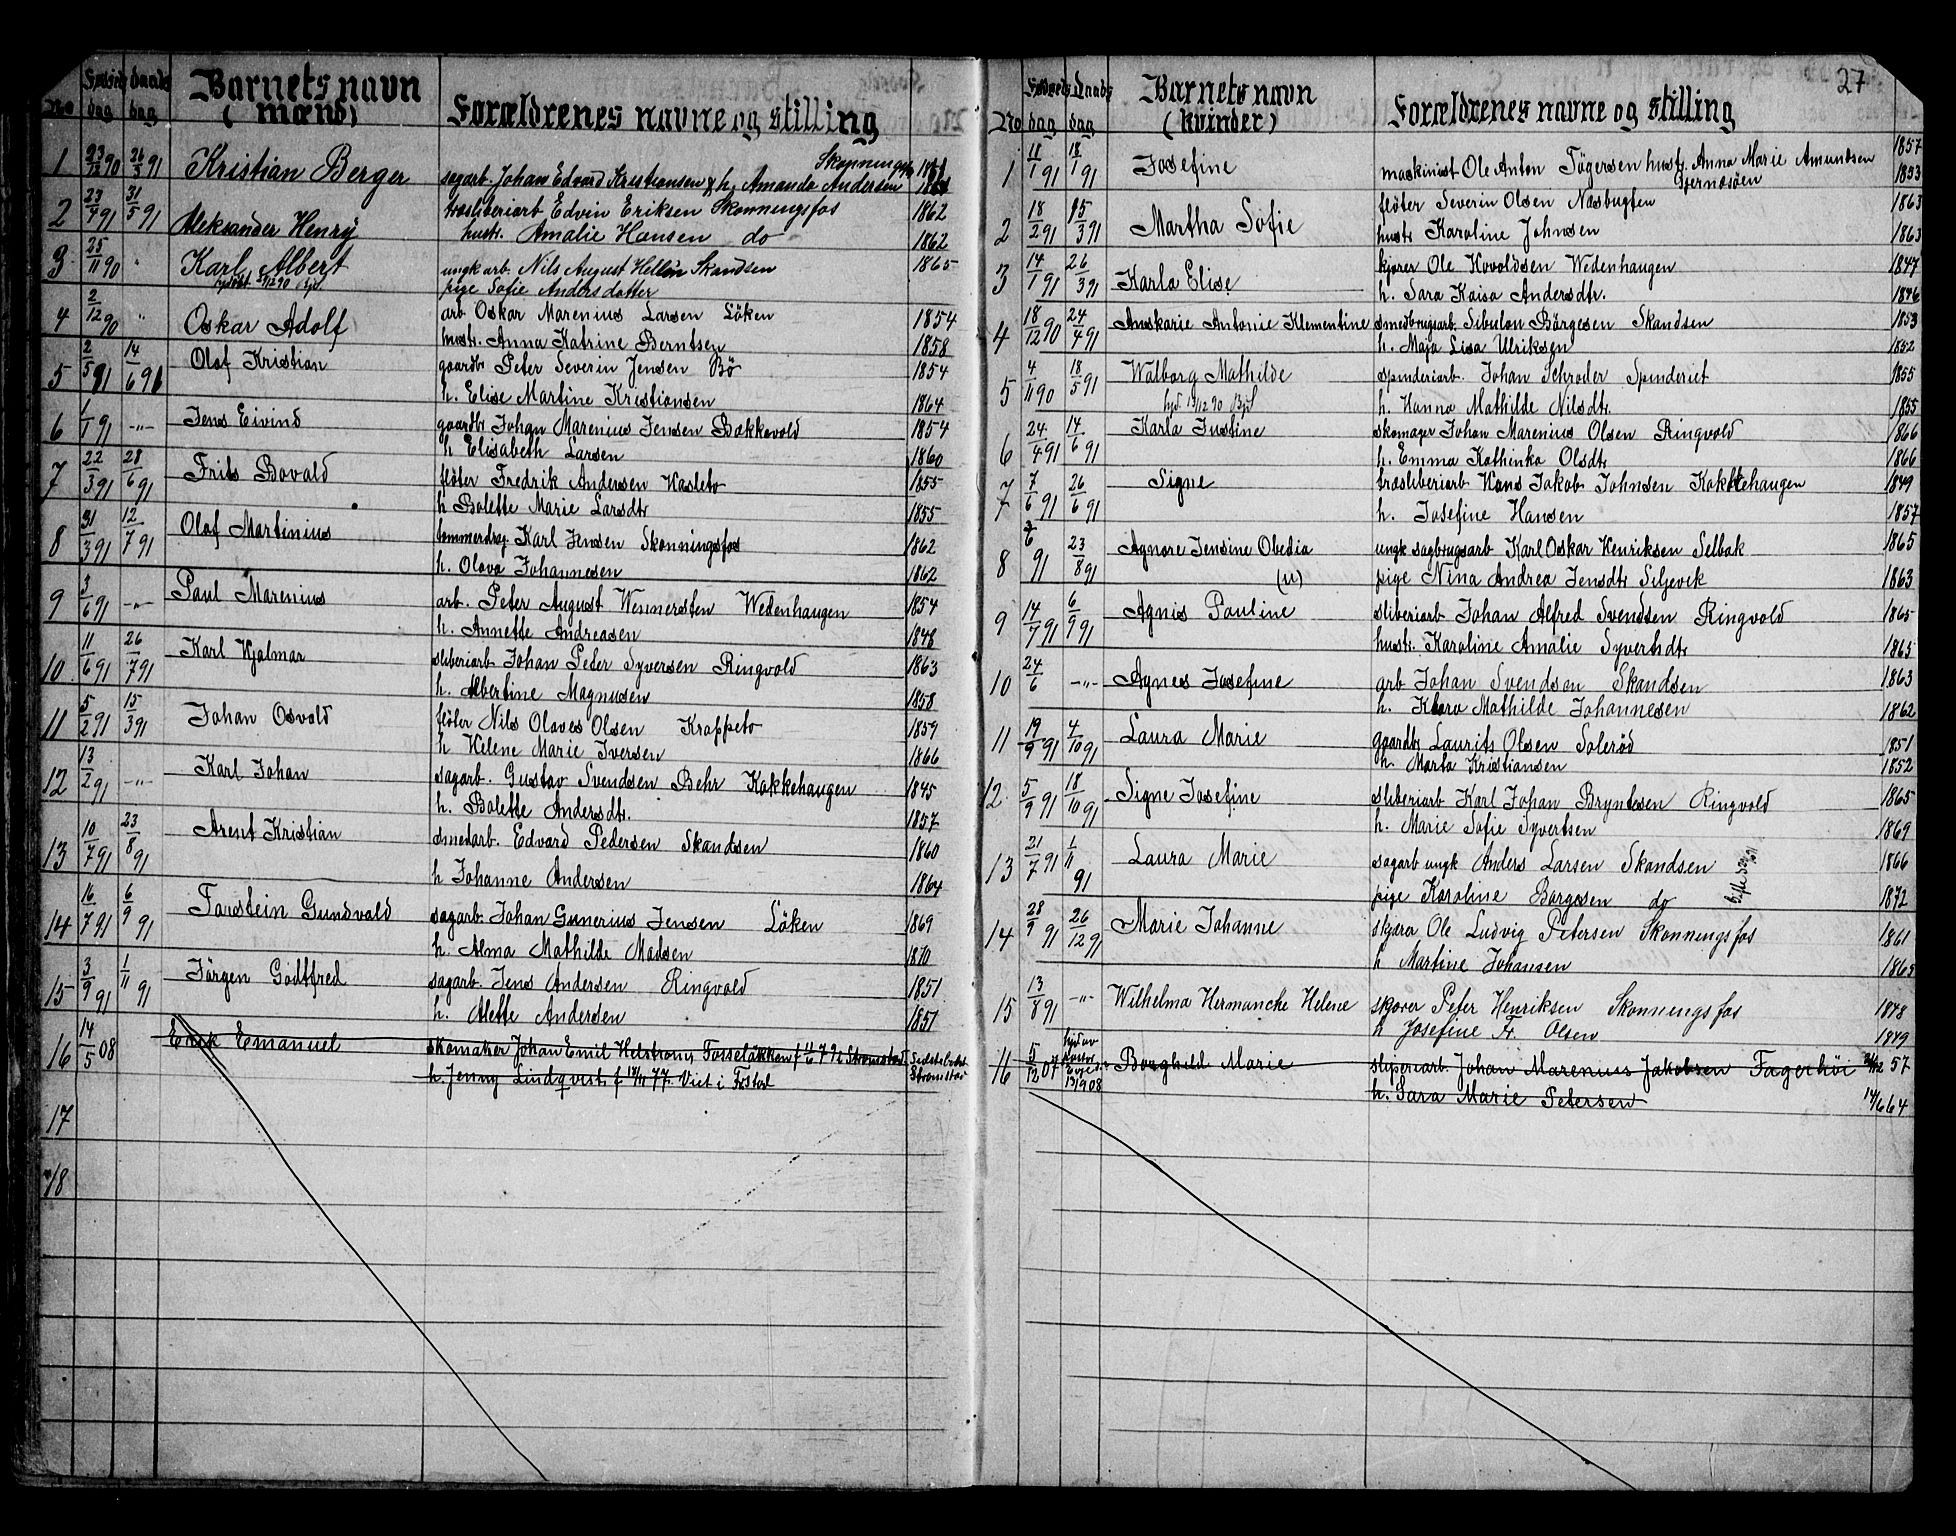 No Fødsels dag Daabs dag Barnets navn (mænd) Forældrenes navne og stilling
1 23/12 90 26/3 91 Kristian Berger Skonningsfos
sagarb. Johan Edvard Kristiansen & h. Amanda Andersen
2 23/4 91 31/5 91 Aleksander Henry træsliberiarb Edvin Eriksen Skonningsfos 1862
hustr. Amalie Hansen do 1862
3 25/11 90 " Karl Albert ungk arb. Nils August Hellen Skandsen 1865
hjdøbt pige Sofie Andersdatter
4 2/12 90 " Oskar Adolf arb Oskar Marenius Larsen Löken 1854
hustr. Anna Katrine Berntsen 1858
5 2/5 91 14/6 91 Olaf Kristian gaardbr Peter Severin Jensen Bö 1854
h. Elise Martine Kristiansen 1864
6 1/1 91 -"- Jens Eivind gaardbr Johan Marenius Jensen Bækkevold 1854
h Elisabeth Larsen 1860
7 22/3 91 28/6 91 Frits Bovald flöter Fredrik Andersen Hasleto 1855
h Bolette Marie Larsdtr 1855
8 31/3 91 12/7 91 Olaf Martinius tommerdrag Karl Jensen Skonningsfos 1862
h. Olava Johannesen 1862
9 3/6 91 -"- Paul Marenius arb. Peter August Wennersten Wedenhaugen 1854
h. Annette Andreasen 1848
10. 11/6 91 26/7 91 Karl Hjalmar sliberiarb Johan Peter Syversen Ringvold 1863
h. Albertine Magnusen 1858
11 5/2 91 15/3 91 Johan Osvald flöter Nils Olaves Olsen Krappeto 1859
h Helene Marie Iversen 1866
12 13/2 91 -"- Karl Johan sagarb. Gustav Svendsen Behr Kakkehaugen 1845
h. Bolette Andersdtr. 1857
13 10/7 91 23/8 91 Arent Kristian smedarb. Edvard Pedersen Skandsen 1860
h Johanne Andersen 1864
14 16/7 91 6/9 91 Torstein Gundvald sagarb. Johan Gunerius Jensen Löken 1869
h. Alma Mathilde Madsen 1870
15 3/9 91 1/11 91 Jörgen Godtfred sagarb. Jens Andersen Ringvold 1851
h. Alette Andersen 1851
16 14/5 08 Erik Emanuel skomaker Johan Emil Helström Fosseløkken Strömstad
h. Jenny Lindqvist f 77. Viet i Fr.stad Strømstad
17
18
27
No Fødsels dag Daabs dag Barnets navn (kvinder) Forældrenes navne og stilling
1 18/1 91 18/1 91 Josefine maskinist Ole Anton Tögersen hustr. Anna Marie Amundsen 1857
Tjernæsöen 1853
2 18/2 91 15/3 91 Martha Sofie flöter Severin Olsen Næsbugten 1863
hustr Karoline Johnsen 1863
3 14/1 91 26/3 91 Karla Elise kjører Ole Havoldsen Wedenhaugen 1847
h. Sara Kaisa Andersdtr. 1846
4 18/12 90 24/4 91 Anskarie Antonie Klementine smedbrugsarb. Sibulon Börgesen Skandsen 1853
h. Maja Lisa Ulriksen 1852
5 4/11 90 18/5 91 Walborg Mathilde spinderiarb. Johan Schröder Spinderiet 1855
hjd 12 90 h. Hanna Mathilde Nilsdtr. 1855
6 24/4 91 14/6 91 Karla Justine skomager Johan Marenius Olsen Ringvold 1866
h. Emma Kathinka Olsdtr 1866
7 7/6 91 26/6 91 Signe træsliberiarb Hans Jakob Johnsen Kakkehaugen 1849
h. Josefine Hansen 1857
8 91 23/8 91 Agnore Jensine Obedia ungk sagbrugsarb Karl Oskar Henriksen Selbak 1865
(u) pige Nina Andrea Jensdtr Siljevik 1863
9 14/7 91 6/9 91 Agnis Pauline sliberiarb Johan Alfred Svendsen Ringvold 1865
hustr. Karoline Amalie Syvertsdtr 1865
10 24/6 -"- Agnes Josefine arb Johan Svendsen Skandsen 1863
h. Klara Mathilde Johannesen 1862
11 19/9 91 4/10 91 Laura Marie gaardbr Laurits Olsen Solerød 1851
h. Marta Kristiansen 1852
12. 5/9 91 18/10 91 Signe Josefine sliberiarb Karl Johan Bryntesen Ringvold 1865
h. Marie Sofie Syvertsen 1869
13 21/7 91 1/11 91 Laura Marie sagarb ungk Anders Larsen Skandsen 1866
pige Karoline Børgesen do 1872
14 28/9 91 26/12 91 Marie Johanne skjøra Ole Ludvig Petersen Skonningsfos 1861
h Martine Johansen 1865
15 13/8 91 -"- Wilhelma Hermanche Helene skjører Peter Henriksen Skonningsfos 1848
h Josefine Fr. Olsen 1849
16 5/12 07 hjd av 08 Borghild Marie sliperiarb. Johan Marenius Jakobsen Fagerhöi 57
h. Sara Marie Petersen 14/6 64